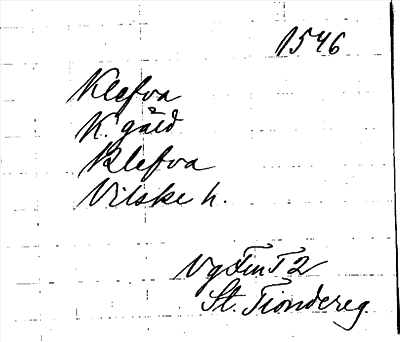 1546
Klefva
K. gård
Klefva
Vilske h.
Vg Fin T 2
St. Tiondereg.